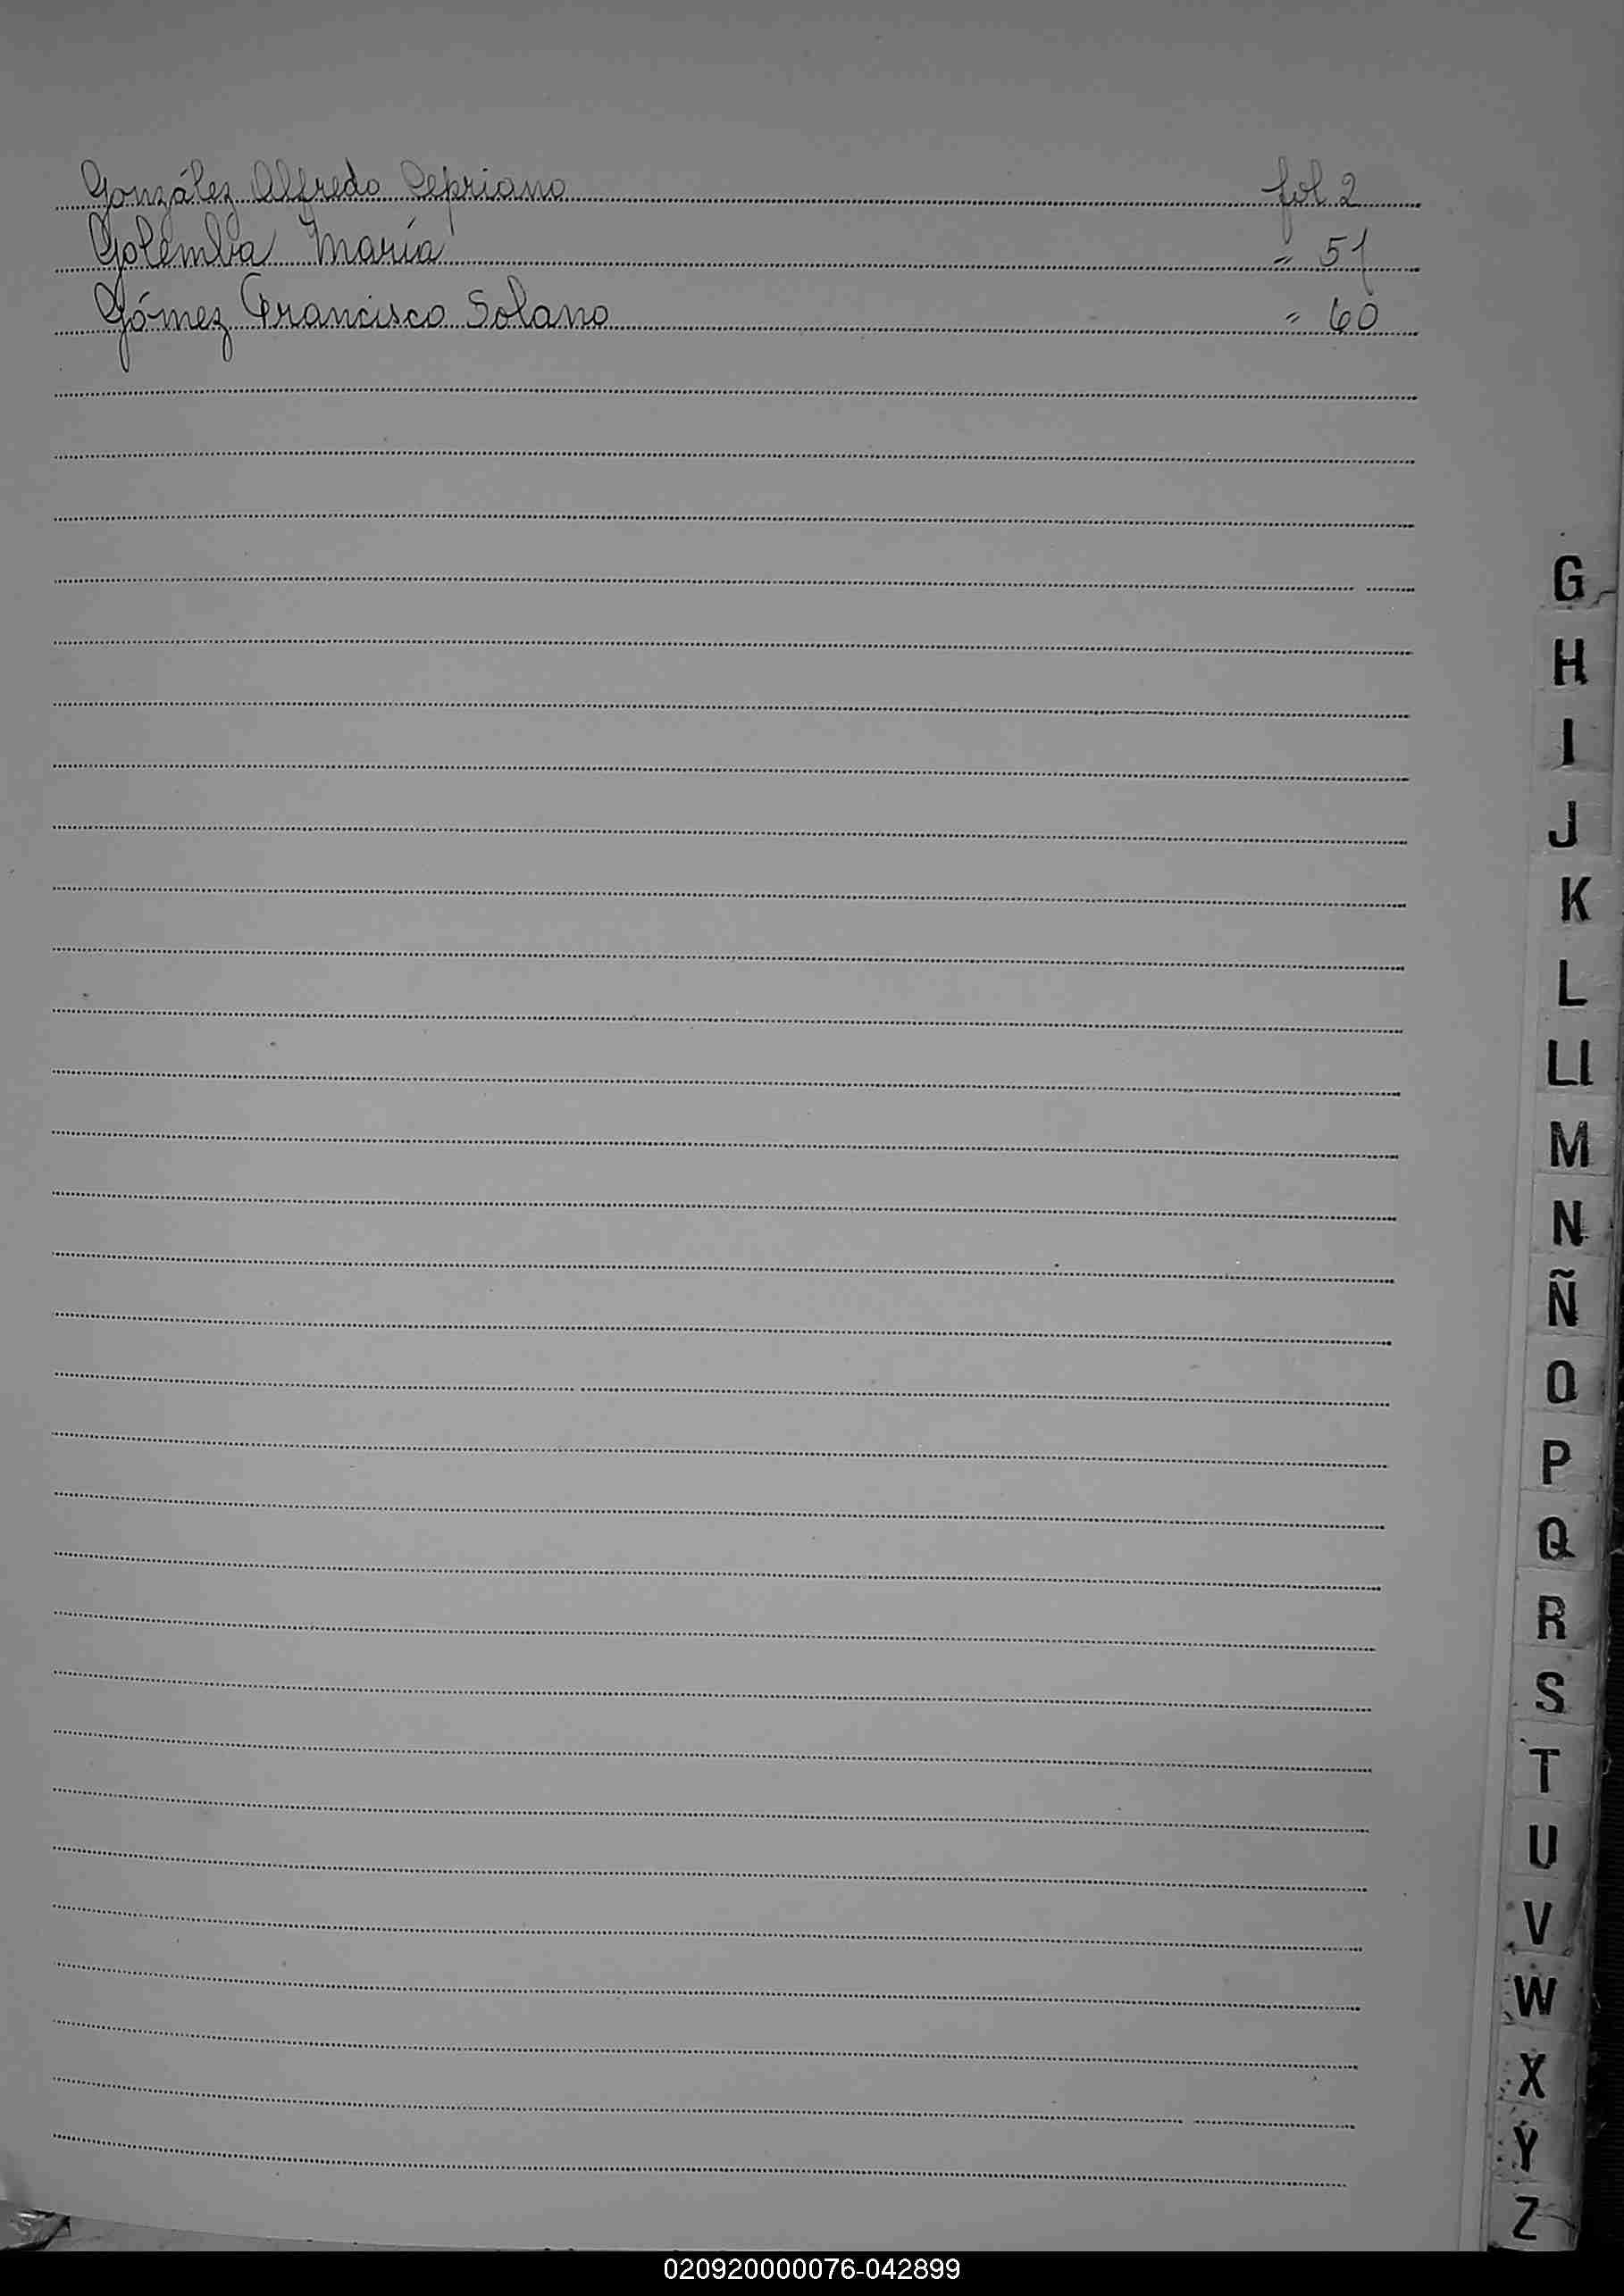 González Alfredo Cepriano fol 2
Golemba María = 51
Gómez Francisco Solano = 60
G
H
I
J
K
L
Ll
M
N
Ñ
O
P
Q
R
S
T
U
V
W
X
Y
Z
020920000076-042899